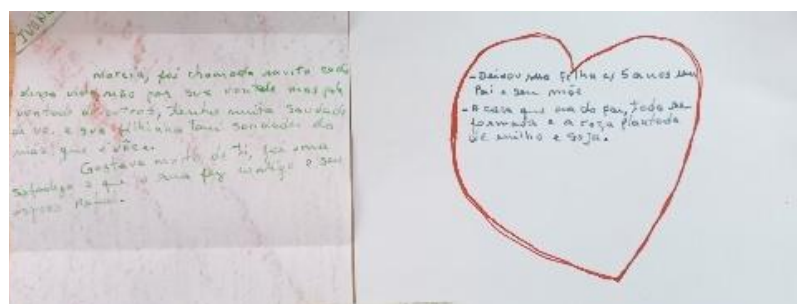 Marcia, foi chamada muito cedo
dessa vida não por sua vontade mas pela
vontade de outros, tenho muita saudade
de vc. e sua filhinha tem saudades da
mãe que é você.
Gostava muito de ti, foi uma
o que o seu fez contigo e seu
esposo
- Deixou sua filha c/ 5 anos sem
Pai e sem mãe
- A casa que era do pai, toda re
formada e a roça plantada
de milho e soja.